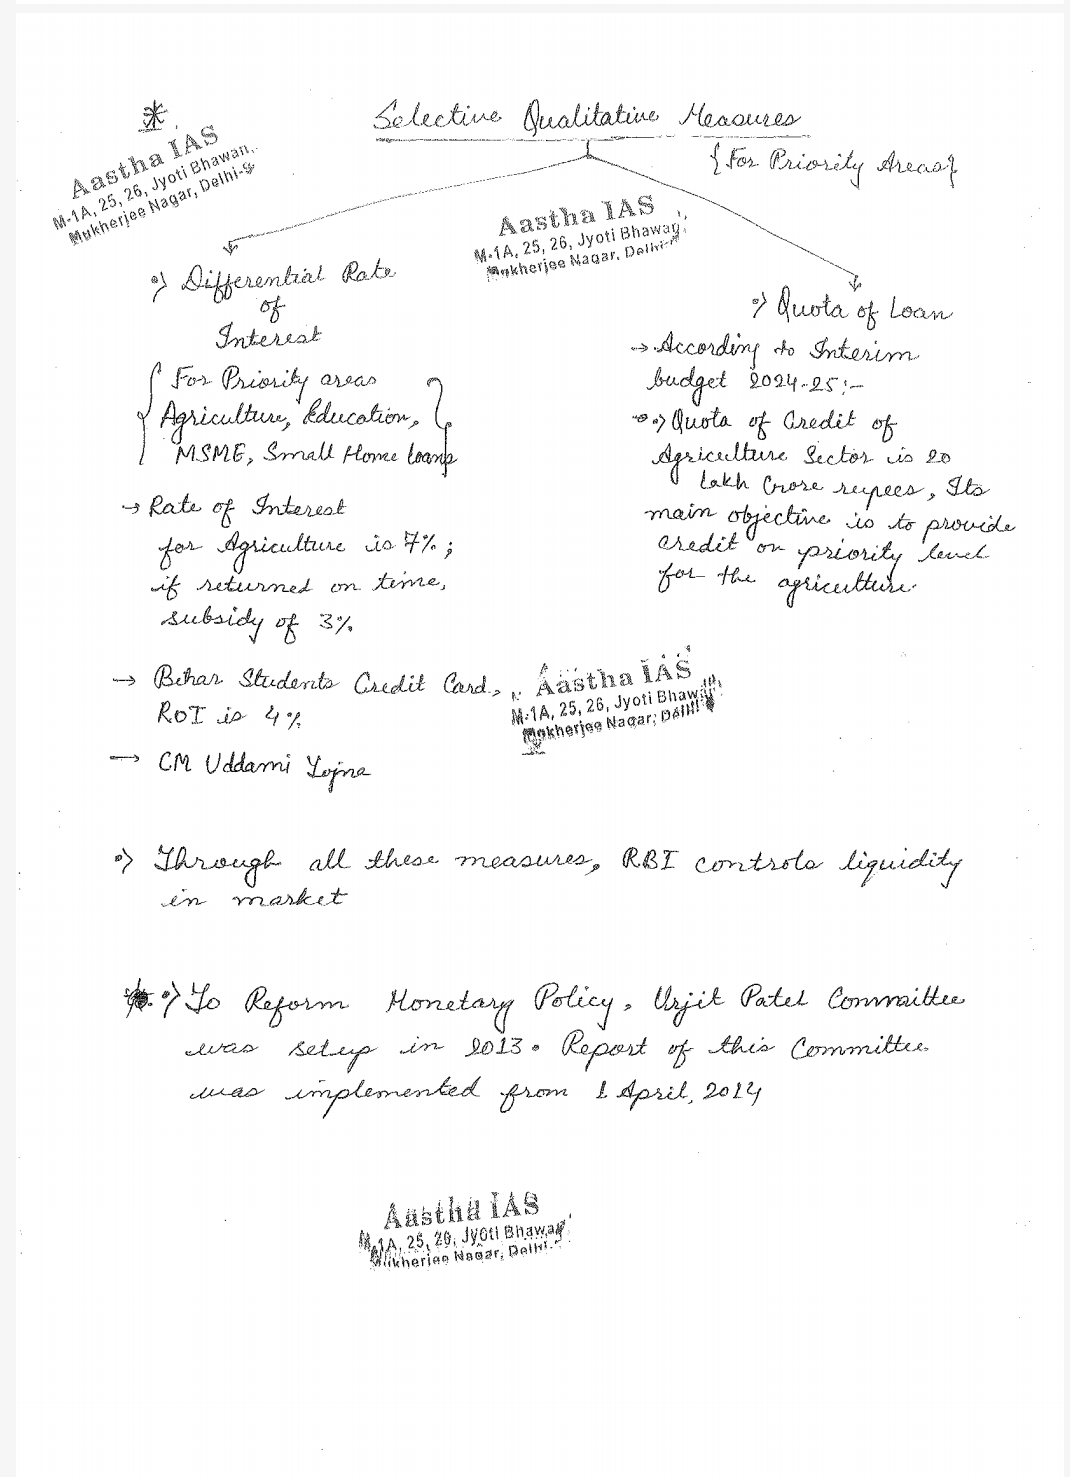 Selective Qualitative Measures
{For Priority Areas}
Aastha IAS
M-1A, 25, 26, Jyoti Bhawan,
Mukherjee Nagar, Delhi-9
Aastha IAS
M-1A, 25, 26, Jyoti Bhawan,
Mukherjee Nagar, Delhi-
•) Differential Rate
of
Interest
{ For Priority areas
Agriculture, Education,
MSME, Small Home loans }
→ Rate of Interest
for Agriculture is 7%;
if returned on time,
subsidy of 3%
→ Bihar Students Credit Card,
ROI is 4%
→ CM Uddami Yojna
•) Quota of Loan
→ According to Interim
budget 2024-25:-
•) Quota of Credit of
Agriculture Sector is 20
lakh Crore rupees, Its
main objective is to provide
credit on priority level
for the agriculture.
Aastha IAS
M-1A, 25, 26, Jyoti Bhawan,
Mukherjee Nagar, Delhi
•) Through all these measures, RBI controls liquidity
in market
•) To Reform Monetary Policy, Urjit Patel Committee
was setup in 2013. Report of this Committee
was implemented from 1 April, 2014
Aastha IAS
M-1A, 25, 26, Jyoti Bhawan,
Mukherjee Nagar, Delhi-